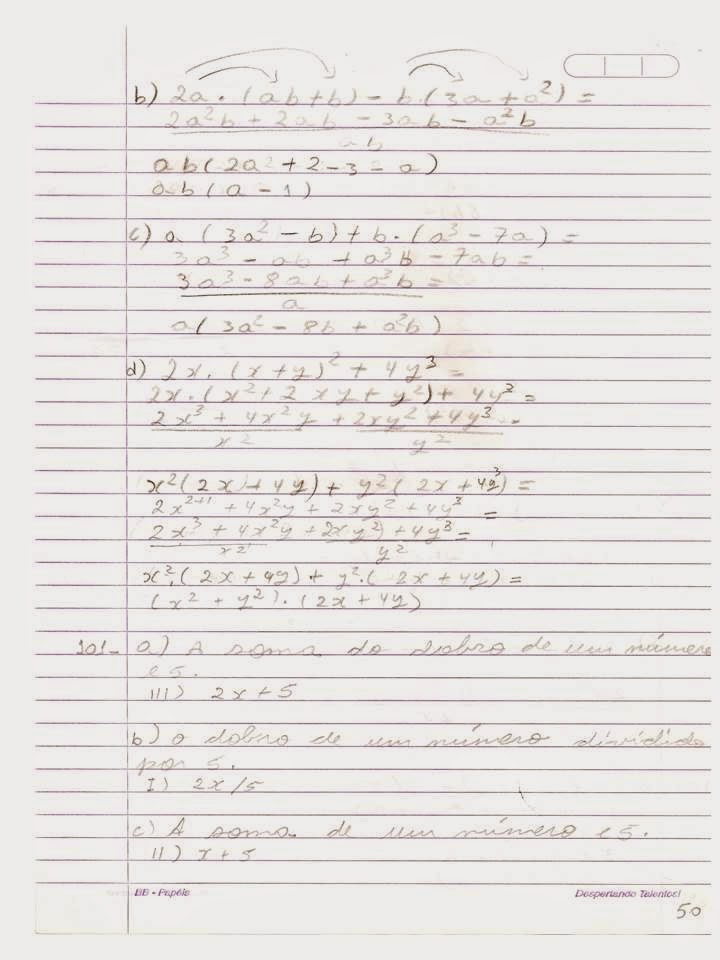 b) 2a · (ab+b) - b · (3a + a²) =
2a²b + 2ab - 3ab - a²b
ab
ab(2a² + 2 - 3 - a)
ab(a - 1)
c) a (3a² - b) + b · (a³ - 7a) =
3a³ - ab + a³b - 7ab =
3a³ - 8ab + a³b =
a
a(3a² - 8b + a²b)
d) 2x · (x+y)² + 4y³ =
2x · (x² + 2xy + y²) + 4y³ =
2x³ + 4x²y + 2xy² + 4y³ =
x² y²
x²(2x + 4y) + y²(2x + 4y³) =
2x²⁺¹ + 4x²y + 2xy² + 4y³ =
2x³ + 4x²y + 2xy² + 4y³ =
x² y²
x² · (2x + 4y) + y² · (2x + 4y) =
(x² + y²) · (2x + 4y)
101- a) A soma do dobro de um número
e 5.
III) 2x + 5
b) o dobro de um número dividido
por 5.
I) 2x/5
c) A soma de um número e 5.
II) x + 5
BB - Papéis Despertando Talentos!
50